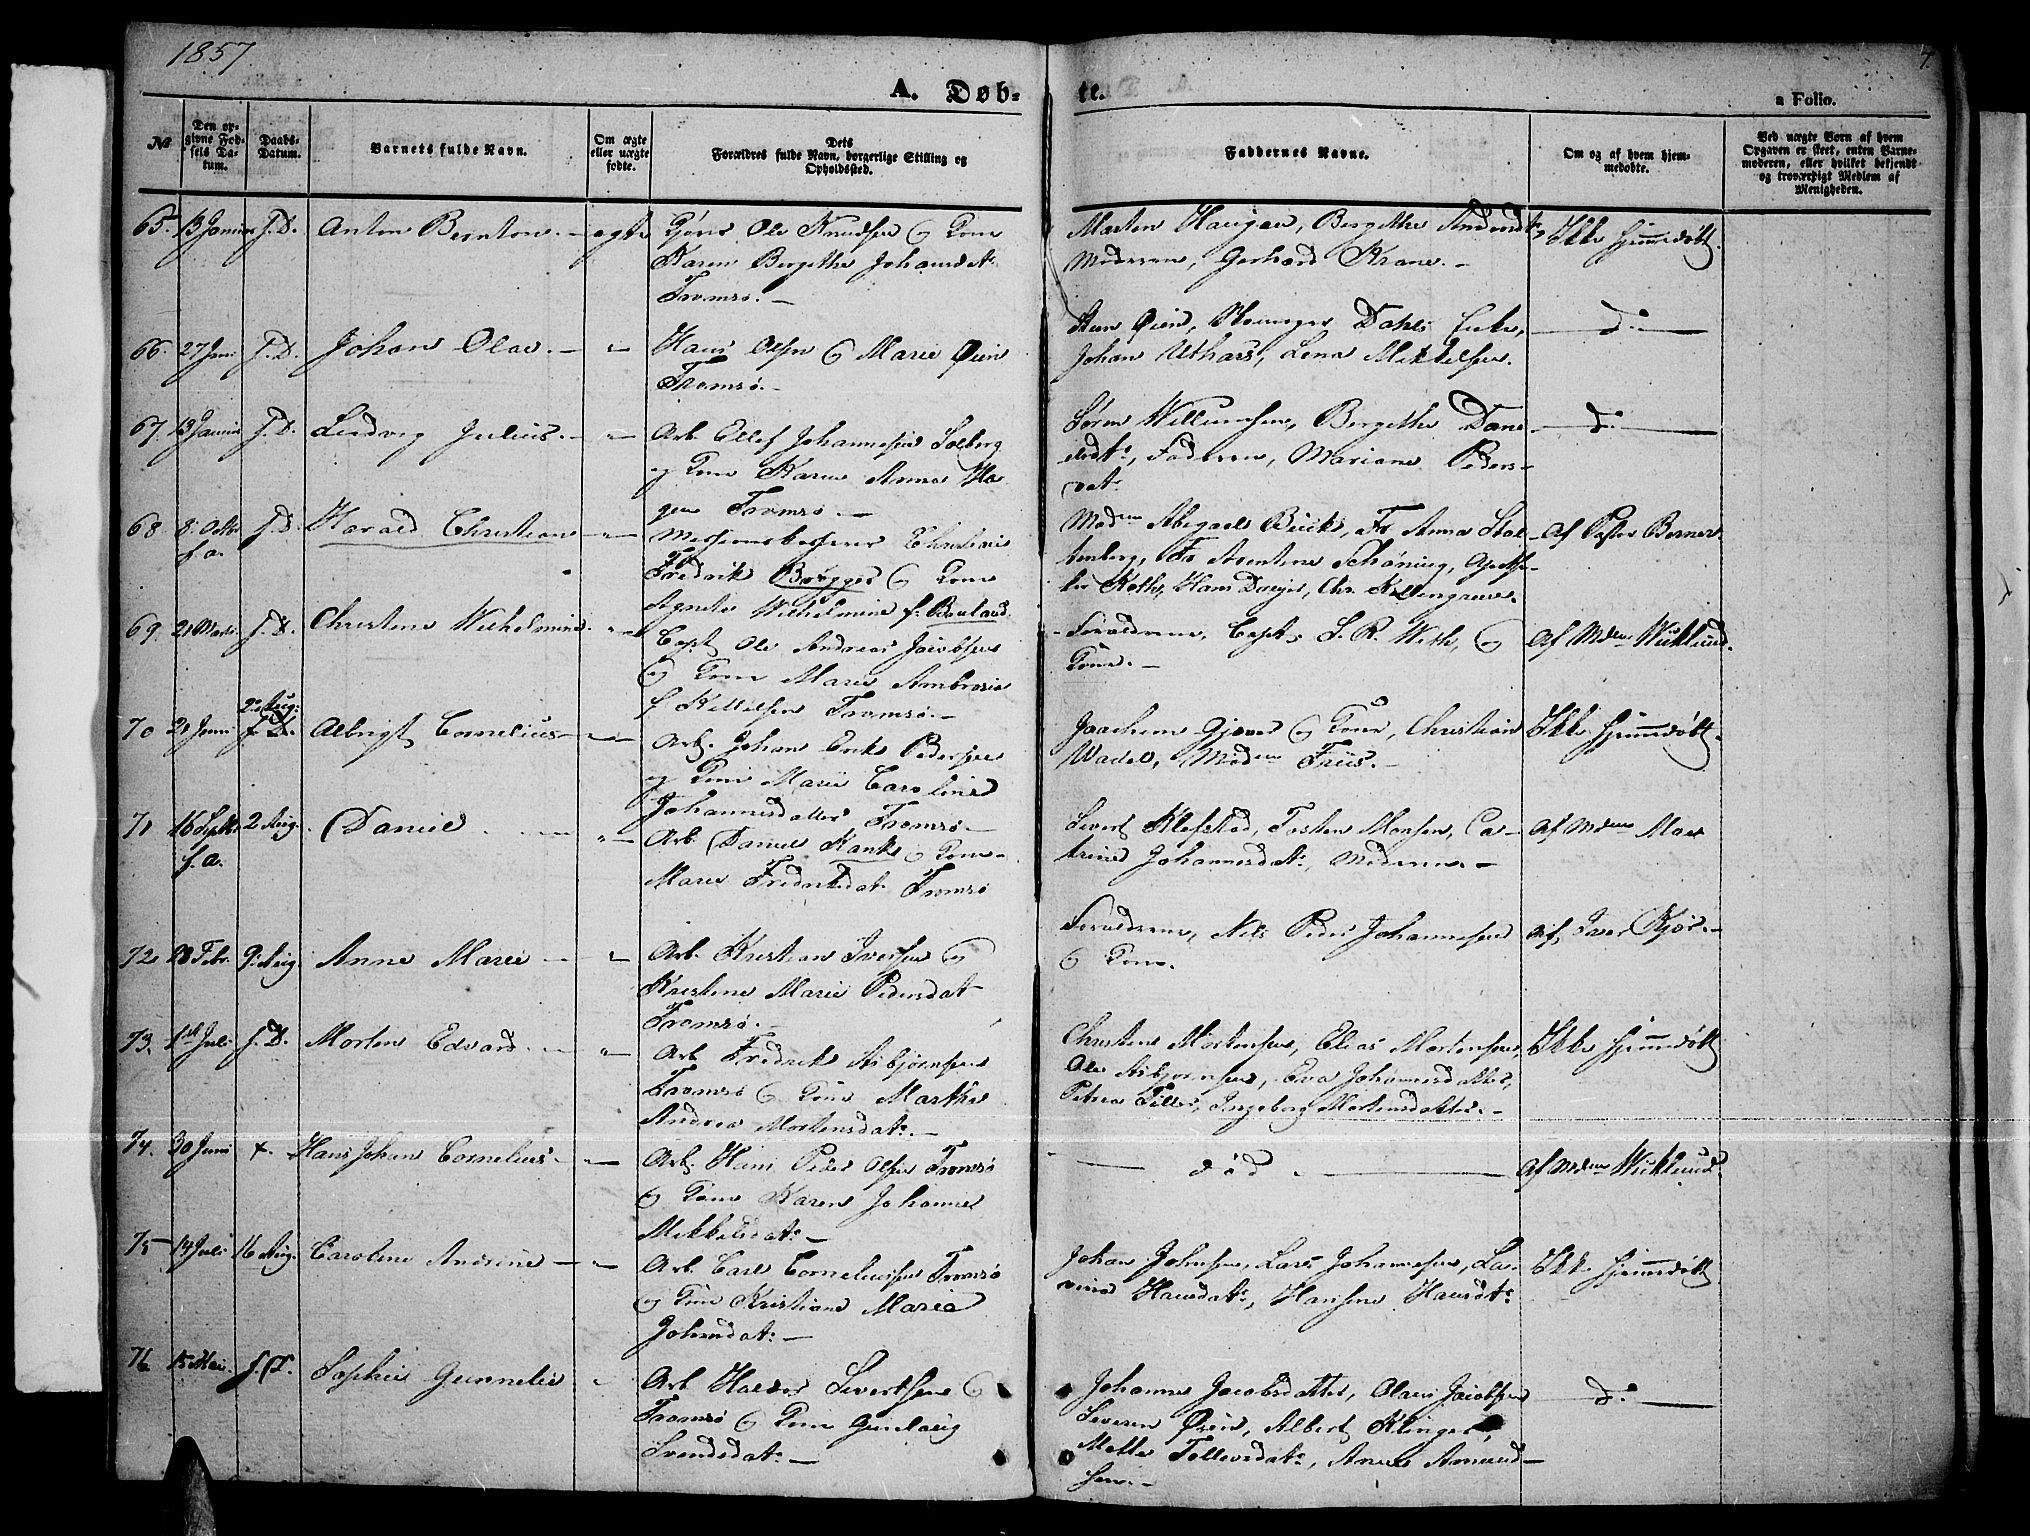 1857
7.
A. Døb-
te.
a Folio.
№
Den opgivne Fødsels Datum.
Daabs-Datum.
Barnets fulde Navn.
Om ægte eller uægte fødte.
Dets Forældres fulde Navn, borgerlige Stilling og Opholdssted.
Faddernes Navne.
Om og af hvem hjemmedøbte.
Ved uægte Børn af hvem Opgaven er skeet, enten Barnemoderen, eller hvilket bekjendt og troværdigt Medlem af Menigheden.
65. 13 Januar f. D. Anton Bernton. ægte Ole Knudsen og Kone
Karen Bergethe Johansdt.
Tromsø.
Morten Haugen, Bergethe
Moderen, Gerhard Krane.
Ikke hjemmedøbt.
66. 27 Juni f. D. Johan Olav. Hans Olsen og Marie Øien
Tromsø.
Øien, Dahls Enke,
Johan Lena Mikkelsen.
d:
67. 13 Januar f. D. Ludvig Julius. Arb. Ellef Johannesen Solberg
og Kone Karen Anna Ha-
gen Tromsø.
Søren Willumsen, Bergethe Dani-
elsdt., Faderen, Mariane Peders-
dat.
d:
68. 8. Octbr f. a. f. D. Harald Christian
Christian
Fredrik Brøgger og Kone
Agnete Wilhelmine f.
Mad. Abigael Anna Stol-
tenberg, Schøning, Apothe-
ker Koth, Hans Dreyer, Chr. Killengreen.
Af Pastor Berner
69. 21 Marts f. D. Christine Wilhelmine
Capt. Ole Andreas Jacobsen
og Kone Maren Ambrosia
f. Kittilsen Tromsø.
Forældrene, Capt. S. R. With, og
Kone.
Af Mdm Wiklund.
70 21 Juni 2. Aug: f. D. Albrigt Cornelius
Arb. Johan Erik Pedersen
og Kone Marie Caroline
Johannesdatter Tromsø.
Joachim Gjæver og Kone, Christian
Wadel, Madm Friis.
Ikke hjemmedøbt.
71 16 Septbr f. a. 2 Aug. Daniel
Arb. Daniel Kank og Kone
Maren Fredriksdat. Tromsø
Sivert Klefstad, Tosten Monsen, Ca-
trine Johannesdat., Moderen.
Af Mdm Moe
72 28 Febr. 9: Aug. Anne Marie
Arb. Kristian Iversen og
Kristine Marie Pedersdat
Tromsø.
Forældrene, Nils Peder Johannesen
og Kone.
Af Iver Kjøs.
73. 1st Juli f. D. Morten Edvard.
Arb. Fredrik Asbjørnsen
Tromsø og Kone Marthe
Andrea Mortensdat.
Christen Mortensen, Elias Mortensen,
Ole Asbjørnsen, Eva Johannesdatter,
Petrea Tiller, Ingeborg Mortensdatter.
Ikke hjemmedøbt
74. 30 Juni +. Hans Johan Cornelius.
Arb. Hans Peder Olsen Tromsø
og Kone Karen Johanne
Mikkelsdat.
død
Af Mdm Wiklund.
75 14 Juli 16 Aug. Caroline Andrine
Arb. Carl Corneliussen Tromsø
og Kone Kristiane Maria
Johnsdat.
Johan Johnsen, Lars Johannesen, La-
vine Hansdat., Hansine Hansdt.
Ikke hjemmedøbt
76 15 Mai. f. D. Sophie Gunnelie
Arb Haldor Sivertsen
Tromsø og Kone Gunlaug
Svendsdat.
Johanne Jacobsdatter, Olaus Jacobsen
Severin Øien, Albert Klinger,
Mette Tollevsdat., Amund-
sen.
d: